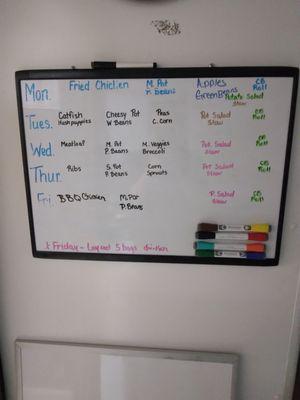 Mon. Fried Chicken M. Pot Apples CB
P. Beans Green Beans Roll
Potato Salad
Slaw
Tues. Catfish Cheesy Pot Peas Pot Salad CB
Hushpuppies W Beans C. Corn Slaw Roll
Wed. Meatloaf M. Pot M. Veggies Pot. Salad CB
P. Beans Broccoli Slaw Roll
Thur. Ribs S. Pot Corn Pot Salad CB
P. Beans Sprouts Slaw Roll
Fri. BBQ Chicken M. Pot P. Salad CB
P. Beans Slaw Roll
Friday - Lay out 5 bags chicken